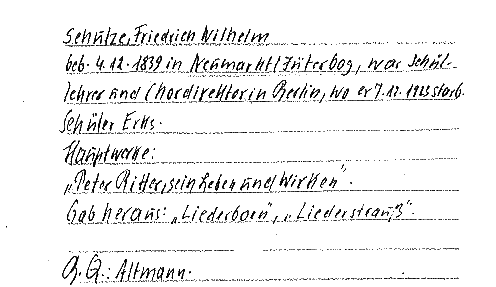 Schütze, Friedrich Wilhelm
geb. 4.12.1839 in Neumarkt/Jüterbog, war Schul-
lehrer und Chordirektor in Berlin, wo er 7.12.1923 starb.
Schüler Erks.
Hauptwerke:
„Peter Ritter, sein Leben und Wirken".
Gab heraus: „Liederborn", „Liederstrauß".
Q.: Altmann.